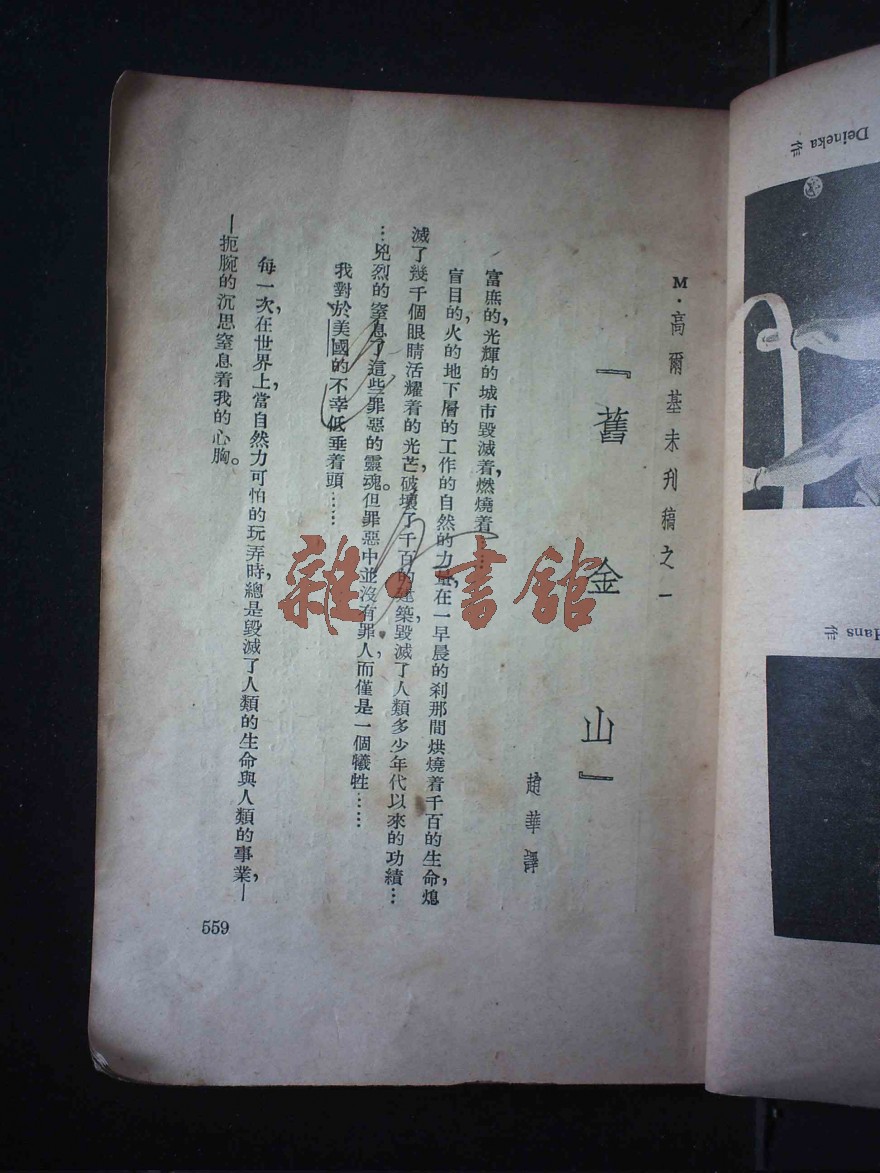 M・高爾基未刊稿之一
『舊金山』
趙華譯
富庶的光輝的城市毀滅着,燃燒着……
盲目的,火的地下層的工作的自然的力量,在一早晨的刹那間烘燒着千百的生命,熄
滅了幾千個眼睛活耀着的光芒,破壞了千百的建築,毀滅了人類多少年代以來的功績…
…兇烈的窒息了這些罪惡的靈魂。但罪惡中並沒有罪人,而僅是一個犧牲……
我對於美國的不幸低垂着頭……
每一次,在世界上,當自然力可怕的玩弄時,總是毀滅了人類的生命與人類的事業,—
—扼腕的沉思窒息着我的心胸。
559
雜・書館
Deineka 作
Hans 作